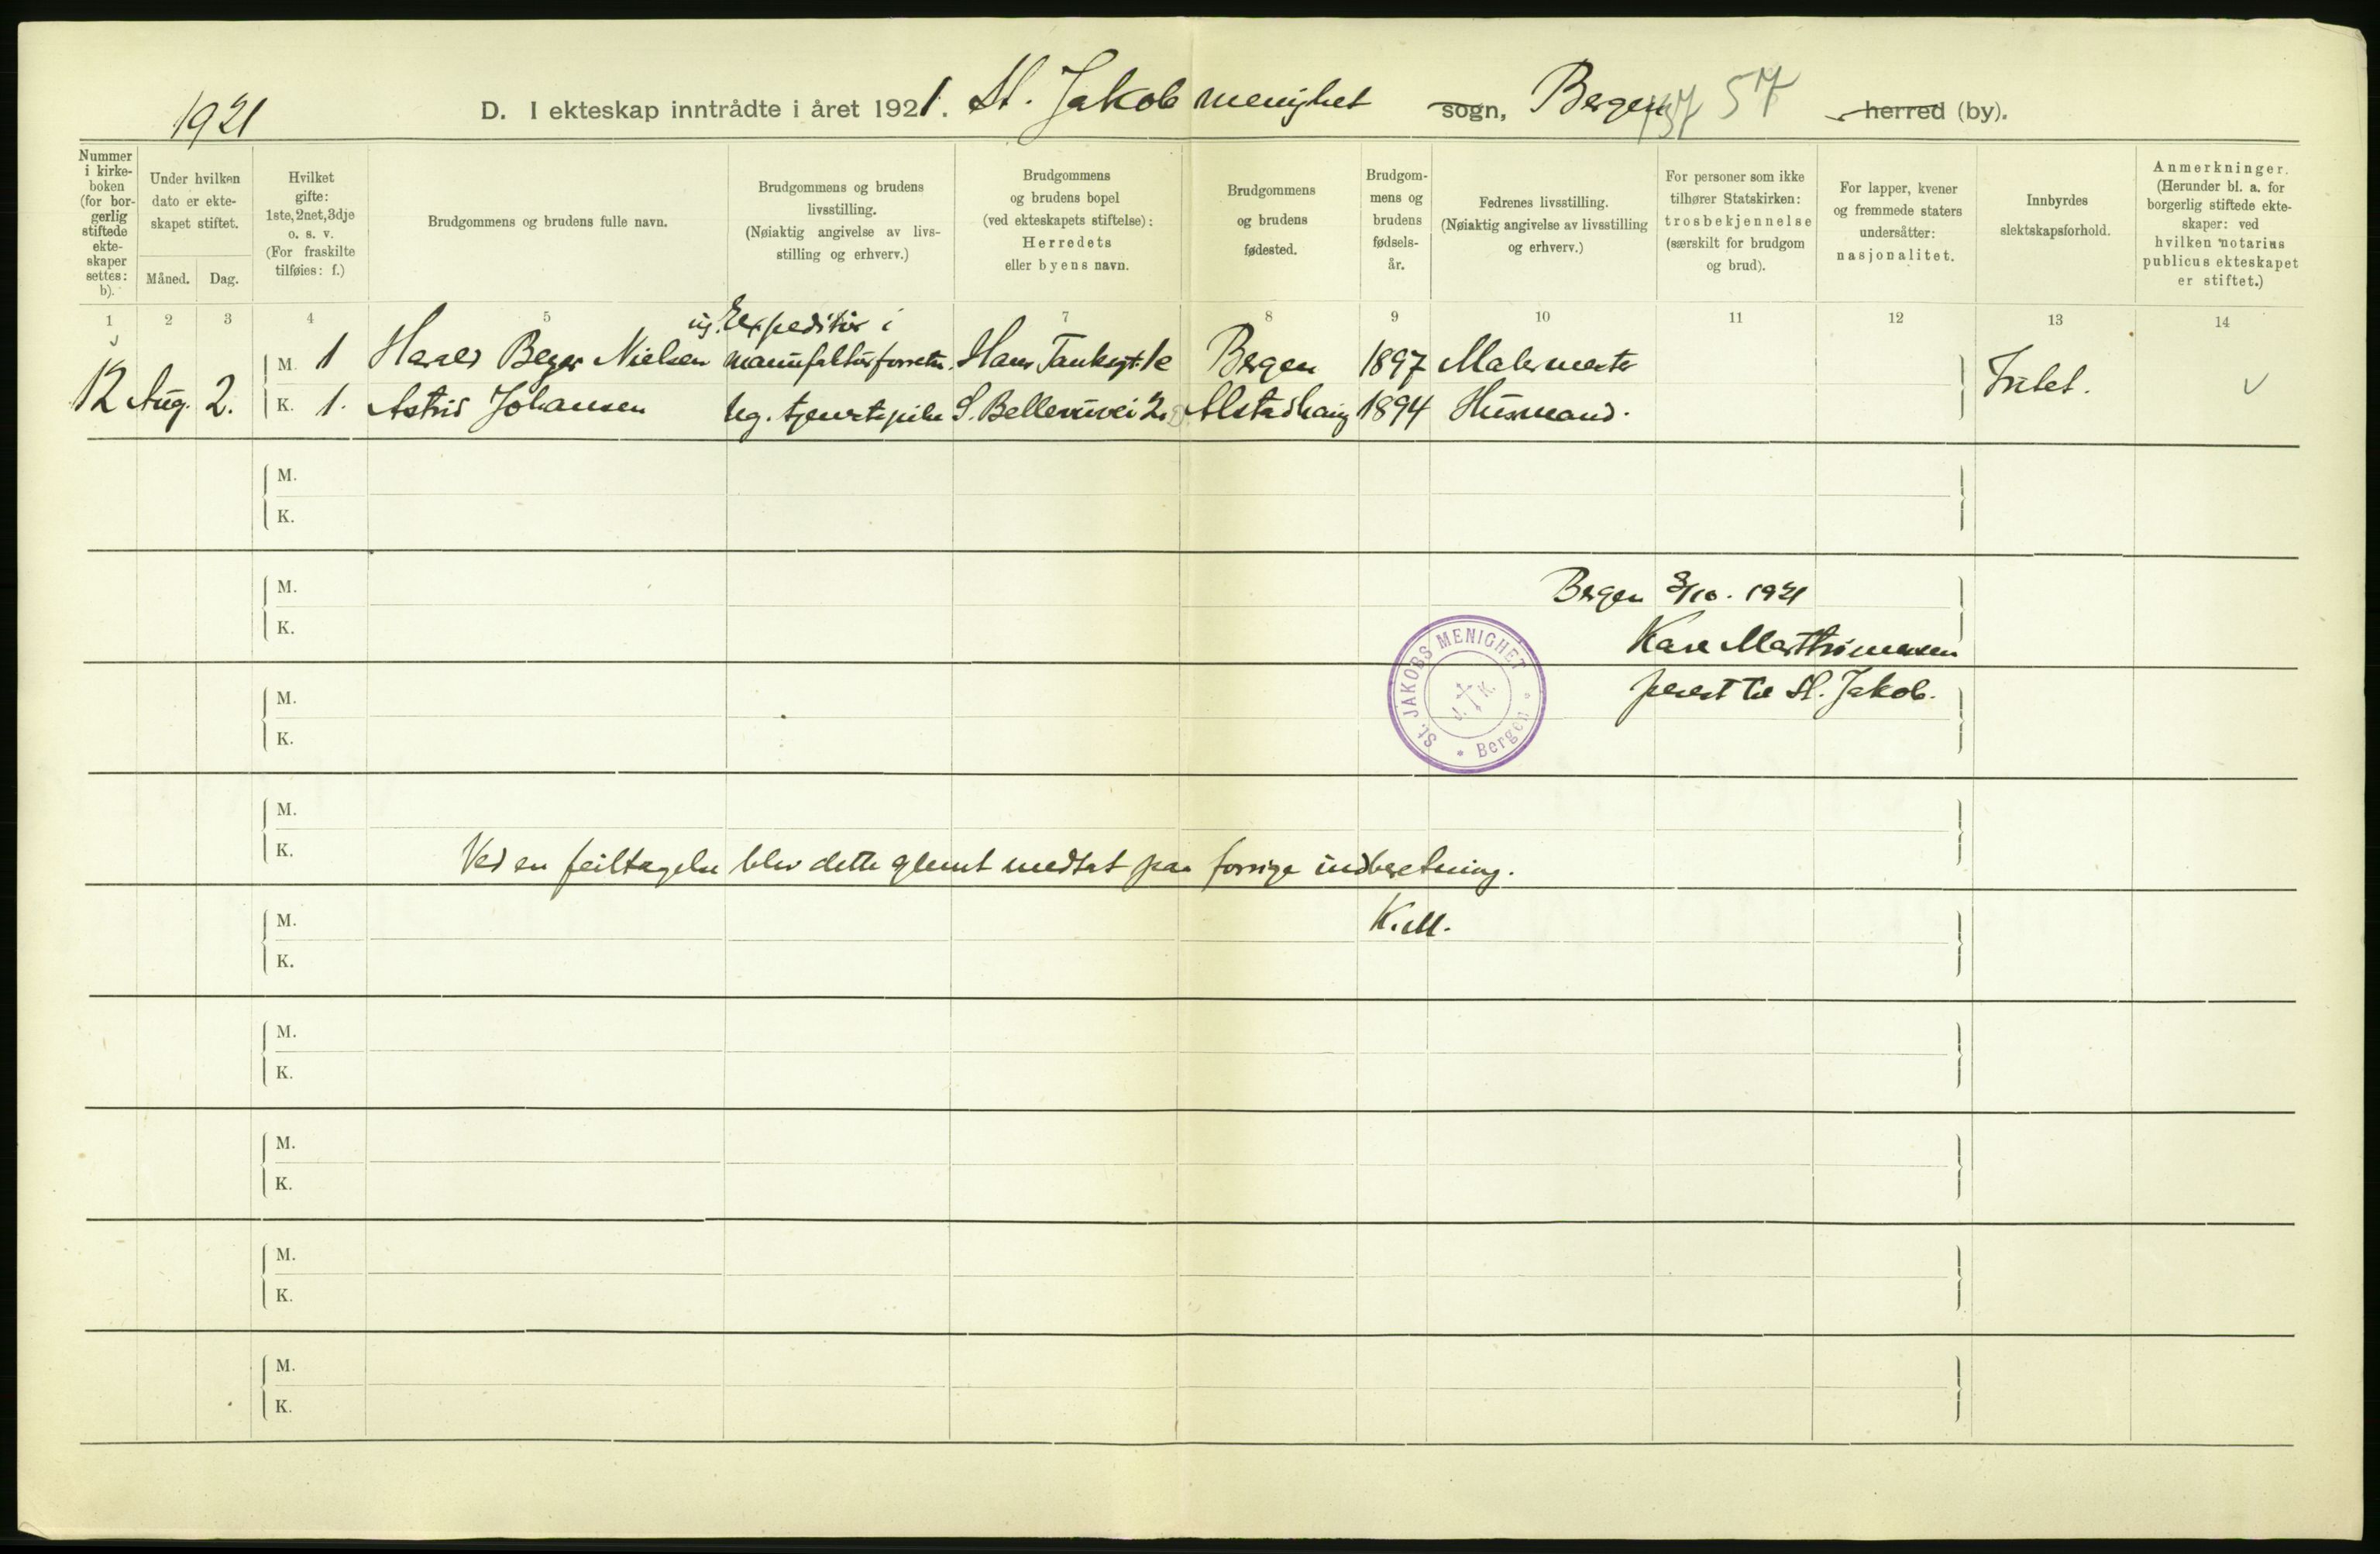 1921
D. I ekteskap inntrådte i året 1921. St. Jakob menighet sogn, Bergen 57 herred (by).
Nummer i kirkeboken (for borgerlig stiftede ekteskaper settes: b).
Under hvilken dato er ekteskapet stiftet.
Måned. Dag.
Hvilket gifte: 1ste, 2net, 3dje o. s. v. (For fraskilte tilføies: f.)
Brudgommens og brudens fulle navn.
Brudgommens og brudens livsstilling. (Nøiaktig angivelse av livsstilling og erhverv.)
Brudgommens og brudens bopel (ved ekteskapets stiftelse): Herredets eller byens navn.
Brudgommens og brudens fødested.
Brudgommens og brudens fødselsår.
Fedrenes livsstilling. (Nøiaktig angivelse av livsstilling og erhverv.)
For personer som ikke tilhører Statskirken: trosbekjennelse (særskilt for brudgom og brud).
For lapper, kvener og fremmede staters undersåtter: nasjonalitet.
Innbyrdes slektskapsforhold.
Anmerkninger. (Herunder bl. a. for borgerlig stiftede ekteskaper: ved hvilken notarius publicus ekteskapet er stiftet.)
1 2 3 4 5 7 8 9 10 11 12 13 14
Expeditør i
M. 1 Harald Beyer Nielsen manufakturforretn. Hans Tanksgt. 1c Bergen 1897 Malermester
12 Aug. 2. K. 1. Astrid Johansen ug. tjenestepike S. Bellevuevei 2 Alstadhaug 1894 Husmand. Intet.
M.
K.
M.
Bergen 3/10. 1921
K.
Marthinussen
prest til St. Jakob.
St. JAKOBS MENIGHET * Bergen *
M.
K.
M.
K.
Ved en feiltagelse blev dette glemt medtat paa forrige indberetning.
M.
K. M.
K.
M.
K.
M.
K.
M.
K.
M.
K.